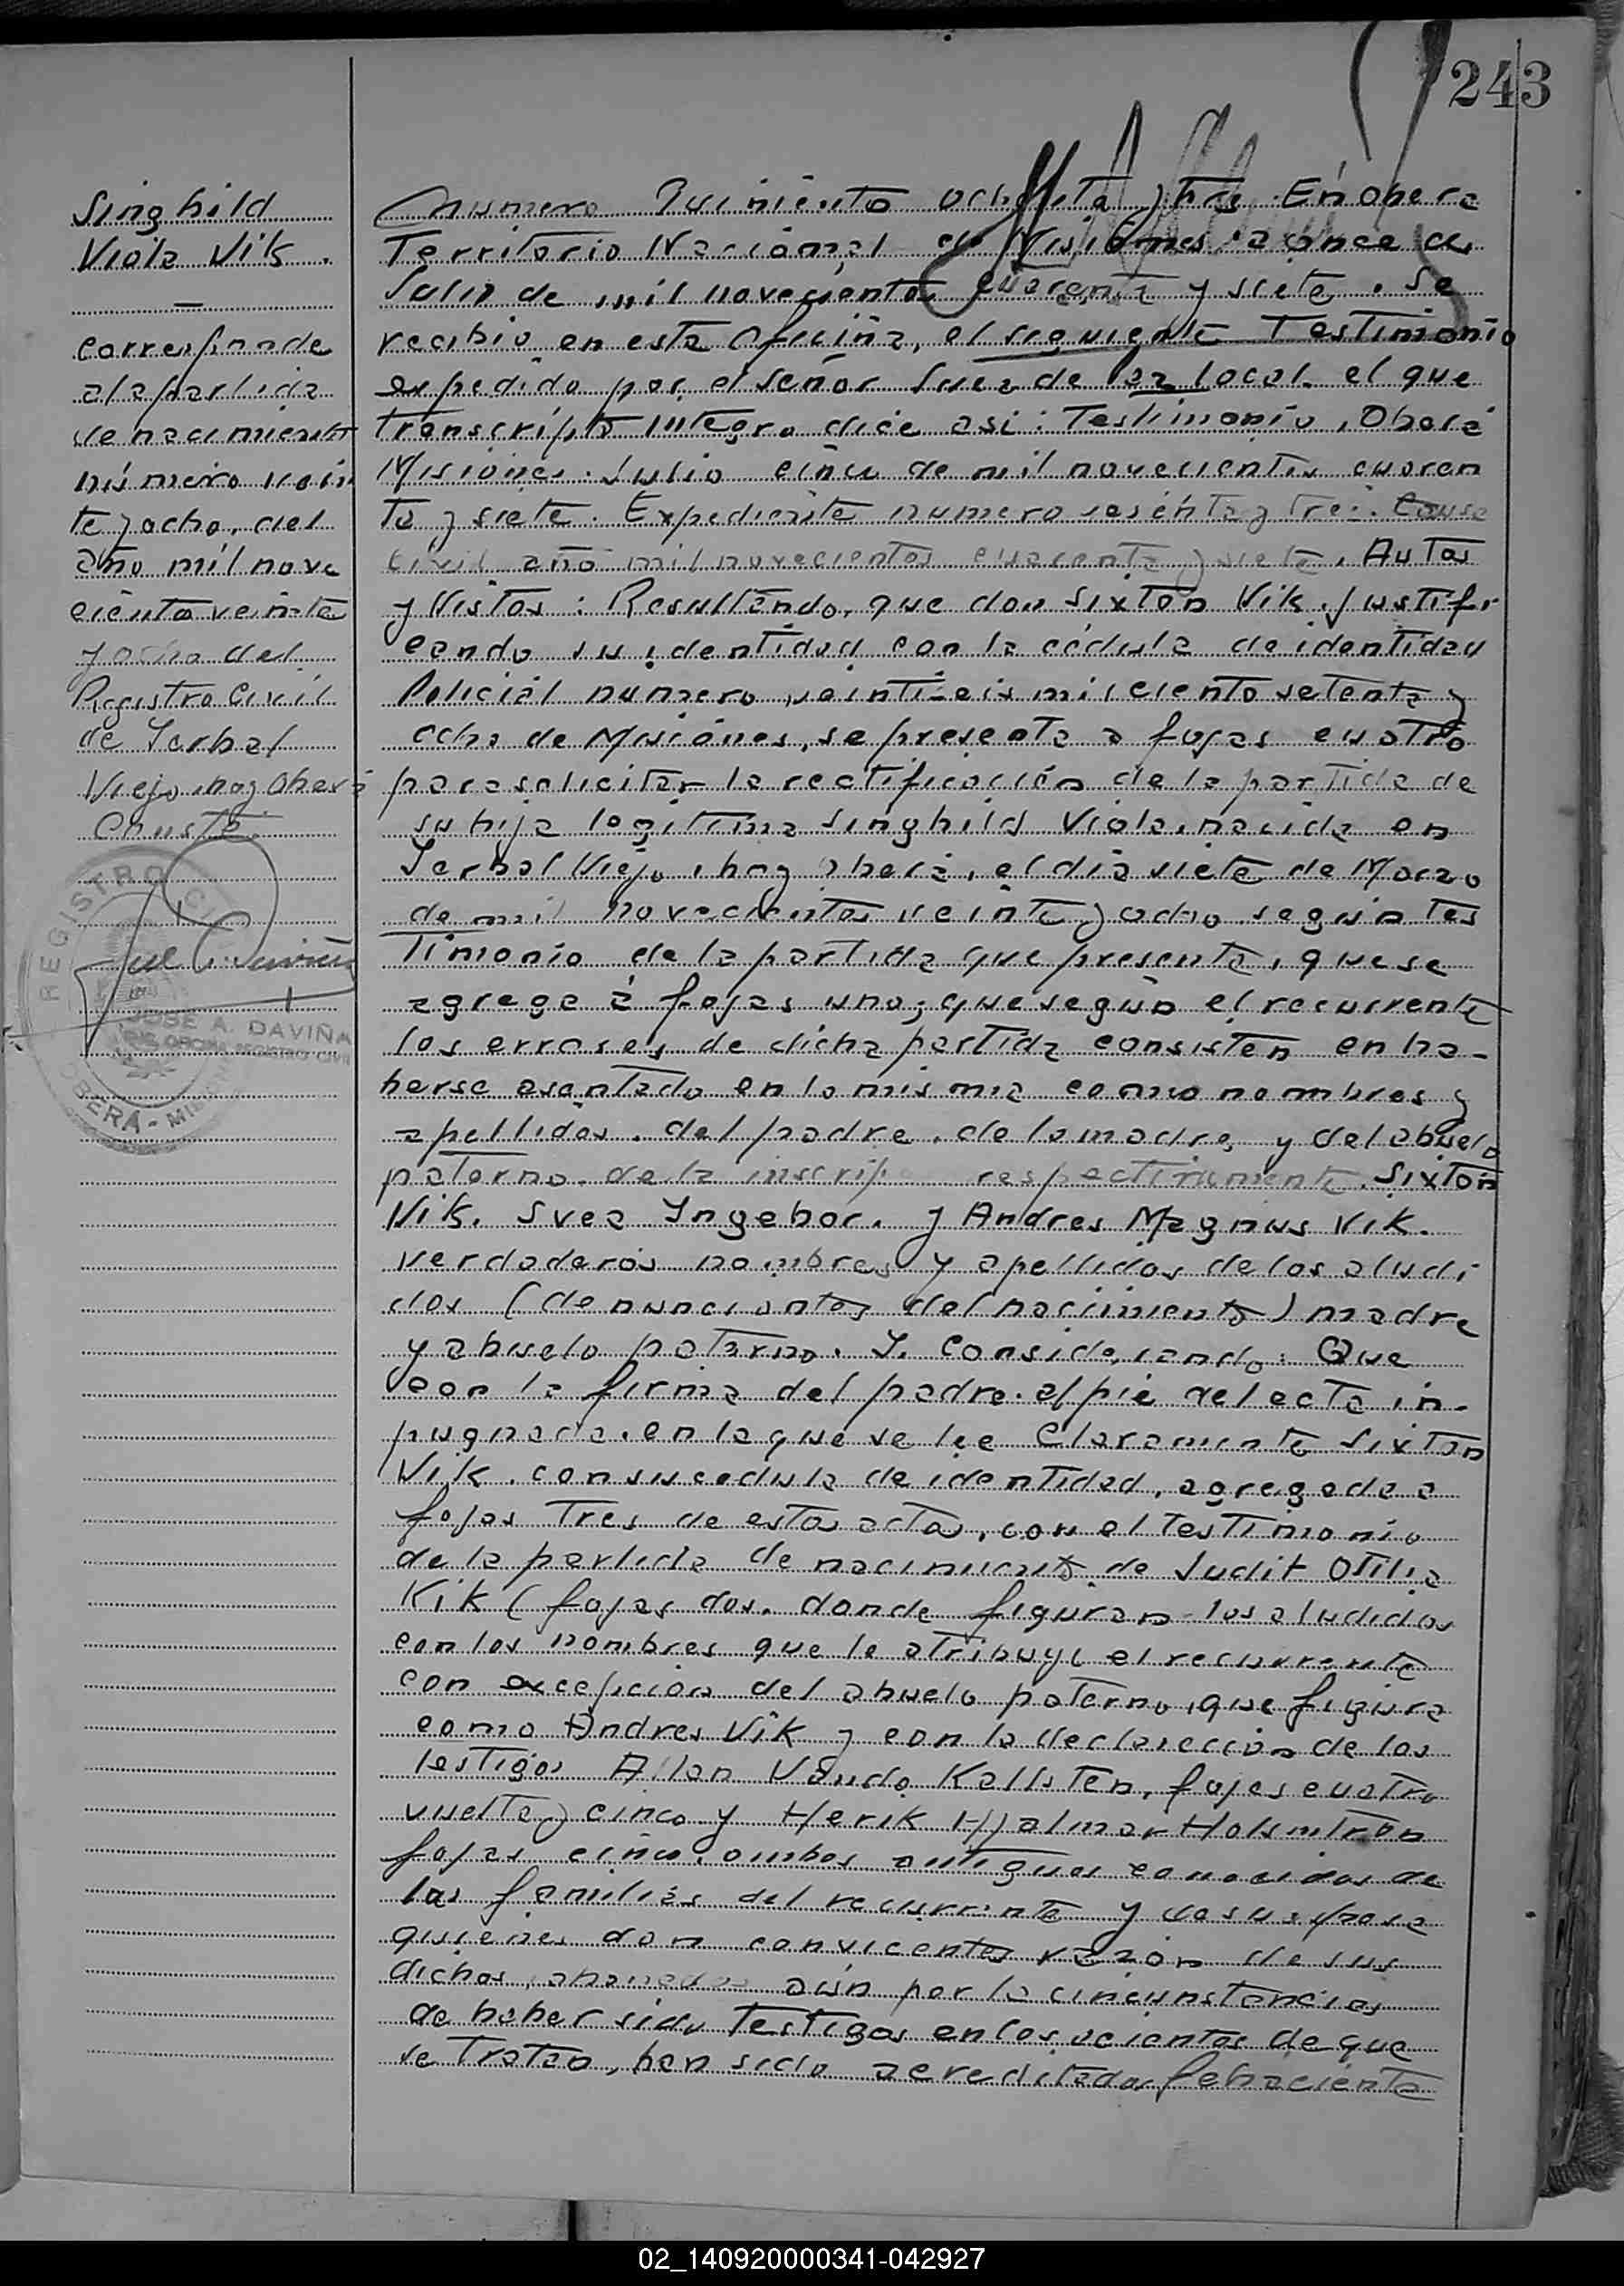 243
Singhild
Viola Vik.
—
corresponde
a la partida
de nacimiento
número vein
te y ocho, del
año mil nove
ciento veinte
y ocho del
Registro Civil
de Yerbal
Viejo, hoy Oberá
Conste.
REGISTRO CIVIL
JOSE A. DAVIÑA
OFICINA REGISTRO CIVIL
OBERÁ - MISIONES
Numero Quiniento ochenta y tres. En Obera
Territorio Nacional de Misiones a once de
Julio de mil novecientos cuarenta y siete. Se
recibio en esta Oficina, el siguiente Testimonio
expedido por el señor Juez de Paz Local. el que
transcripto integro dice asi: Testimonio, Oberá
Misiones. Julio cinco de mil novecientos cuaren
ta y siete. Expediente numero sesenta y tres. Causa
Civil año mil novecientos cuarenta y siete. Autos
y Vistos: Resultando, que don Sixton Vik. justifi
cando su identidad con la cédula de identidad
Policial número veintiseis mil ciento setenta y
ocho de Misiones, se presenta a fojas cuatro
para solicitar la rectificación de la partida de
su hija legitima Singhild Viola, nacida en
Yerbal Viejo, hoy Oberá, el día siete de Marzo
de mil novecientos veinte y ocho segun tes
timonio de la partida que presenta, que se
agrega á fojas uno; que según el recurrente
los errores de dicha partida consisten en ha-
berse asentado en la misma como nombres y
apellidos. del padre. de la madre, y del abuelo
paterno. de la inscripta respectivamente. Sixton
Vik. Svea Yngebor. y Andres Magnus Vik.
verdaderos nombres y apellidos de los aludi
dos (denunciantes del nacimiento) madre
y abuelo paterno. Y. Considerando: Que
con la firma del padre. al pie del acta in-
pugnada. en la que se lee claramente Sixton
Vik. con su cedula de identidad, agregada a
fojas tres de estas actas, con el testimonio
de la partida de nacimiento de Judit Otilia
Kik (fojas dos. donde figuran los aludidos
con los nombres que le atribuye el recurrente
con excepcion del abuelo paterno, que figura
como Andres Vik y con la declaracion de los
testigos Allan Kallsten, fojas cuatro
vuelta y cinco y Herik Hjalmar Holsmtron
fojas cinco. ambos antiguos conocidos de
las familias del recurrente y de su esposa
quienes dan convicentes razón de sus
dichos, abonados aún por la circunstancias
de haber sido testigos en los acientos de que
se tratan, han sido acreditados fehaciente
02_140920000341-042927